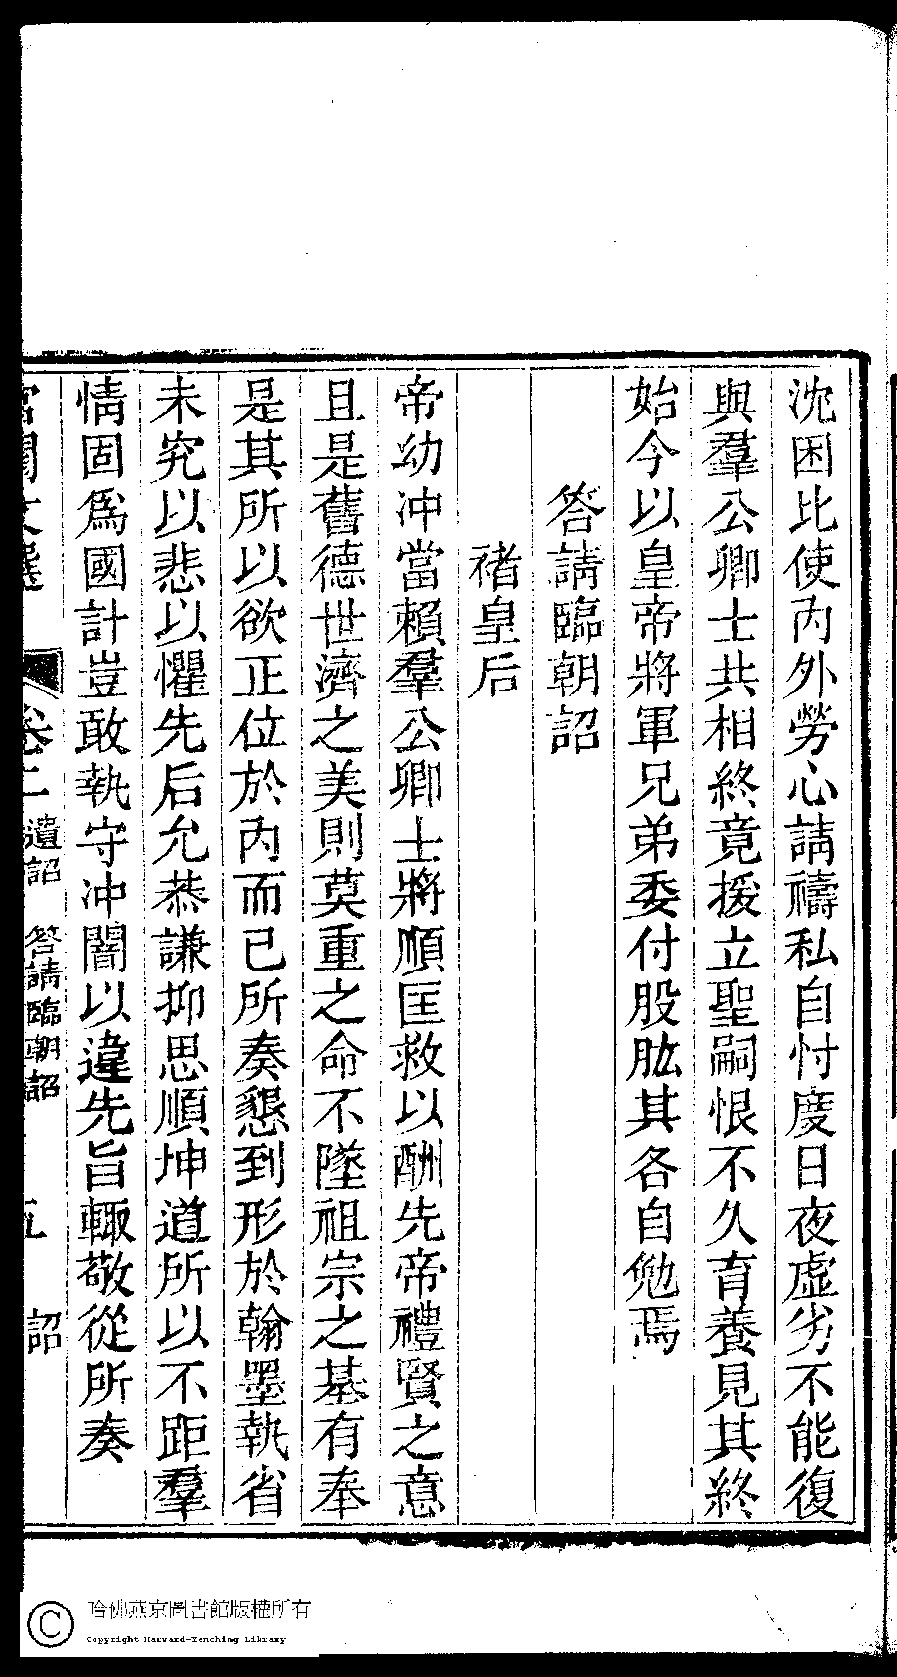 沈困比使內外勞心請禱私自忖度日夜虛劣不能復
與羣公卿士共相終竟援立聖嗣恨不久育養見其終
始今以皇帝將軍兄弟委付股肱其各自勉焉
答請臨朝詔
褚皇后
帝幼冲當賴羣公卿士將順匡救以酬先帝禮賢之意
且是舊德世濟之美則莫重之命不墜祖宗之基有奉
是其所以欲正位於內而已所奏懇到形於翰墨執省
未究以悲以懼先后允恭謙抑思順坤道所以不距羣
情固爲國計豈敢執守冲闇以違先旨輙敬從所奏
宮閨文選 卷二 遺詔 答請臨朝詔 五 詔
哈佛燕京圖書館版權所有
Copyright Harvard-Yenching Library